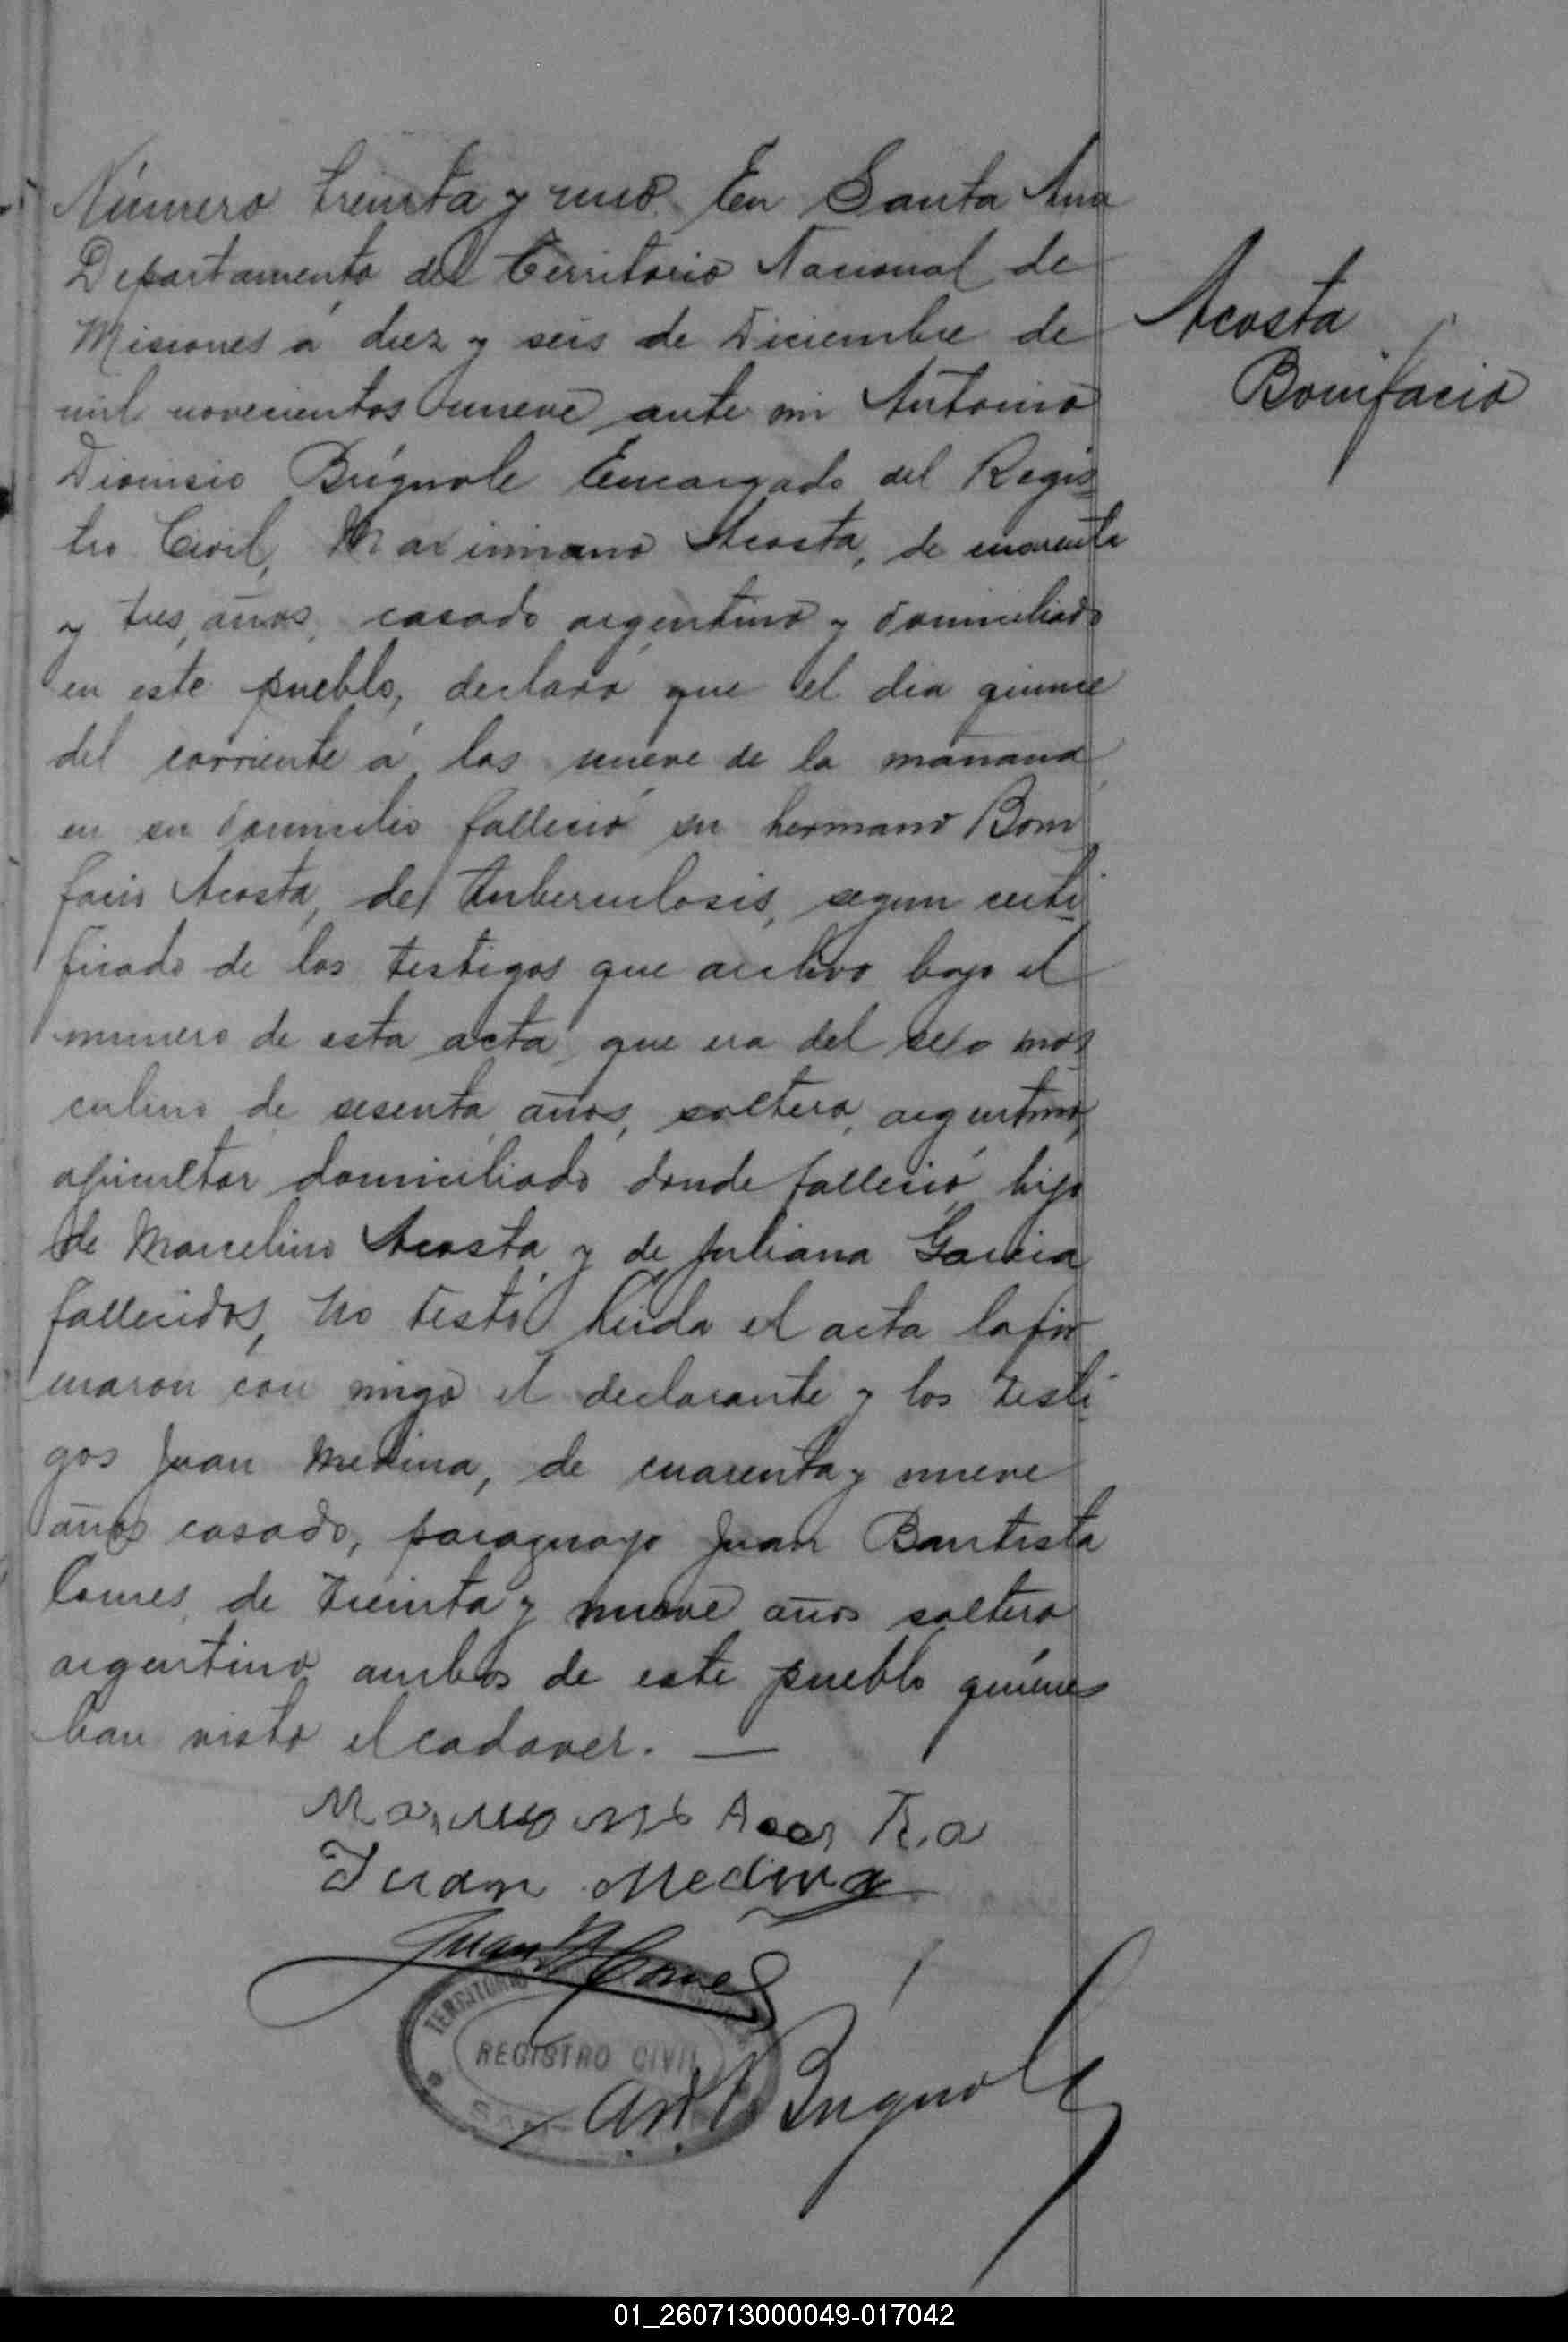 Número treinta y uno. En Santa Ana
Departamento del Territorio Nacional de
Misiones á diez y seis de Diciembre de
mil novecientos nueve ante mi Antonio
Dionisio Brignole Encargado del Regis-
tro Civil, Maximiano Acosta, de cuarenta
y tres años, casado argentino y domiciliado
en este pueblo, declaró que el dia quince
del corriente á las nueve de la mañana
en su domicilio falleció su hermano Boni
facio Acosta, de tuberculosis, segun certi-
ficado de los testigos que archivo bajo el
numero de esta acta, que era del sexo mas-
culino de sesenta años, soltero, argentino,
agricultor domiciliado donde falleció, hijo
de Marcelino Acosta y de Juliana Garcia
fallecidos, no testó leida el acta la fir
maron con migo el declarante y los testi-
gos Juan Medina, de cuarenta y nueve
años casado, paraguayo Juan Bautista
Comes, de treinta y nueve años soltero
argentino ambos de este pueblo quienes
han visto el cadaver. —
Acosta
Bonifacio
Juan Medina
Juan B Comes
TERRITORIO
REGISTRO CIVIL
Ant. D. Brignole
01_260713000049-017042